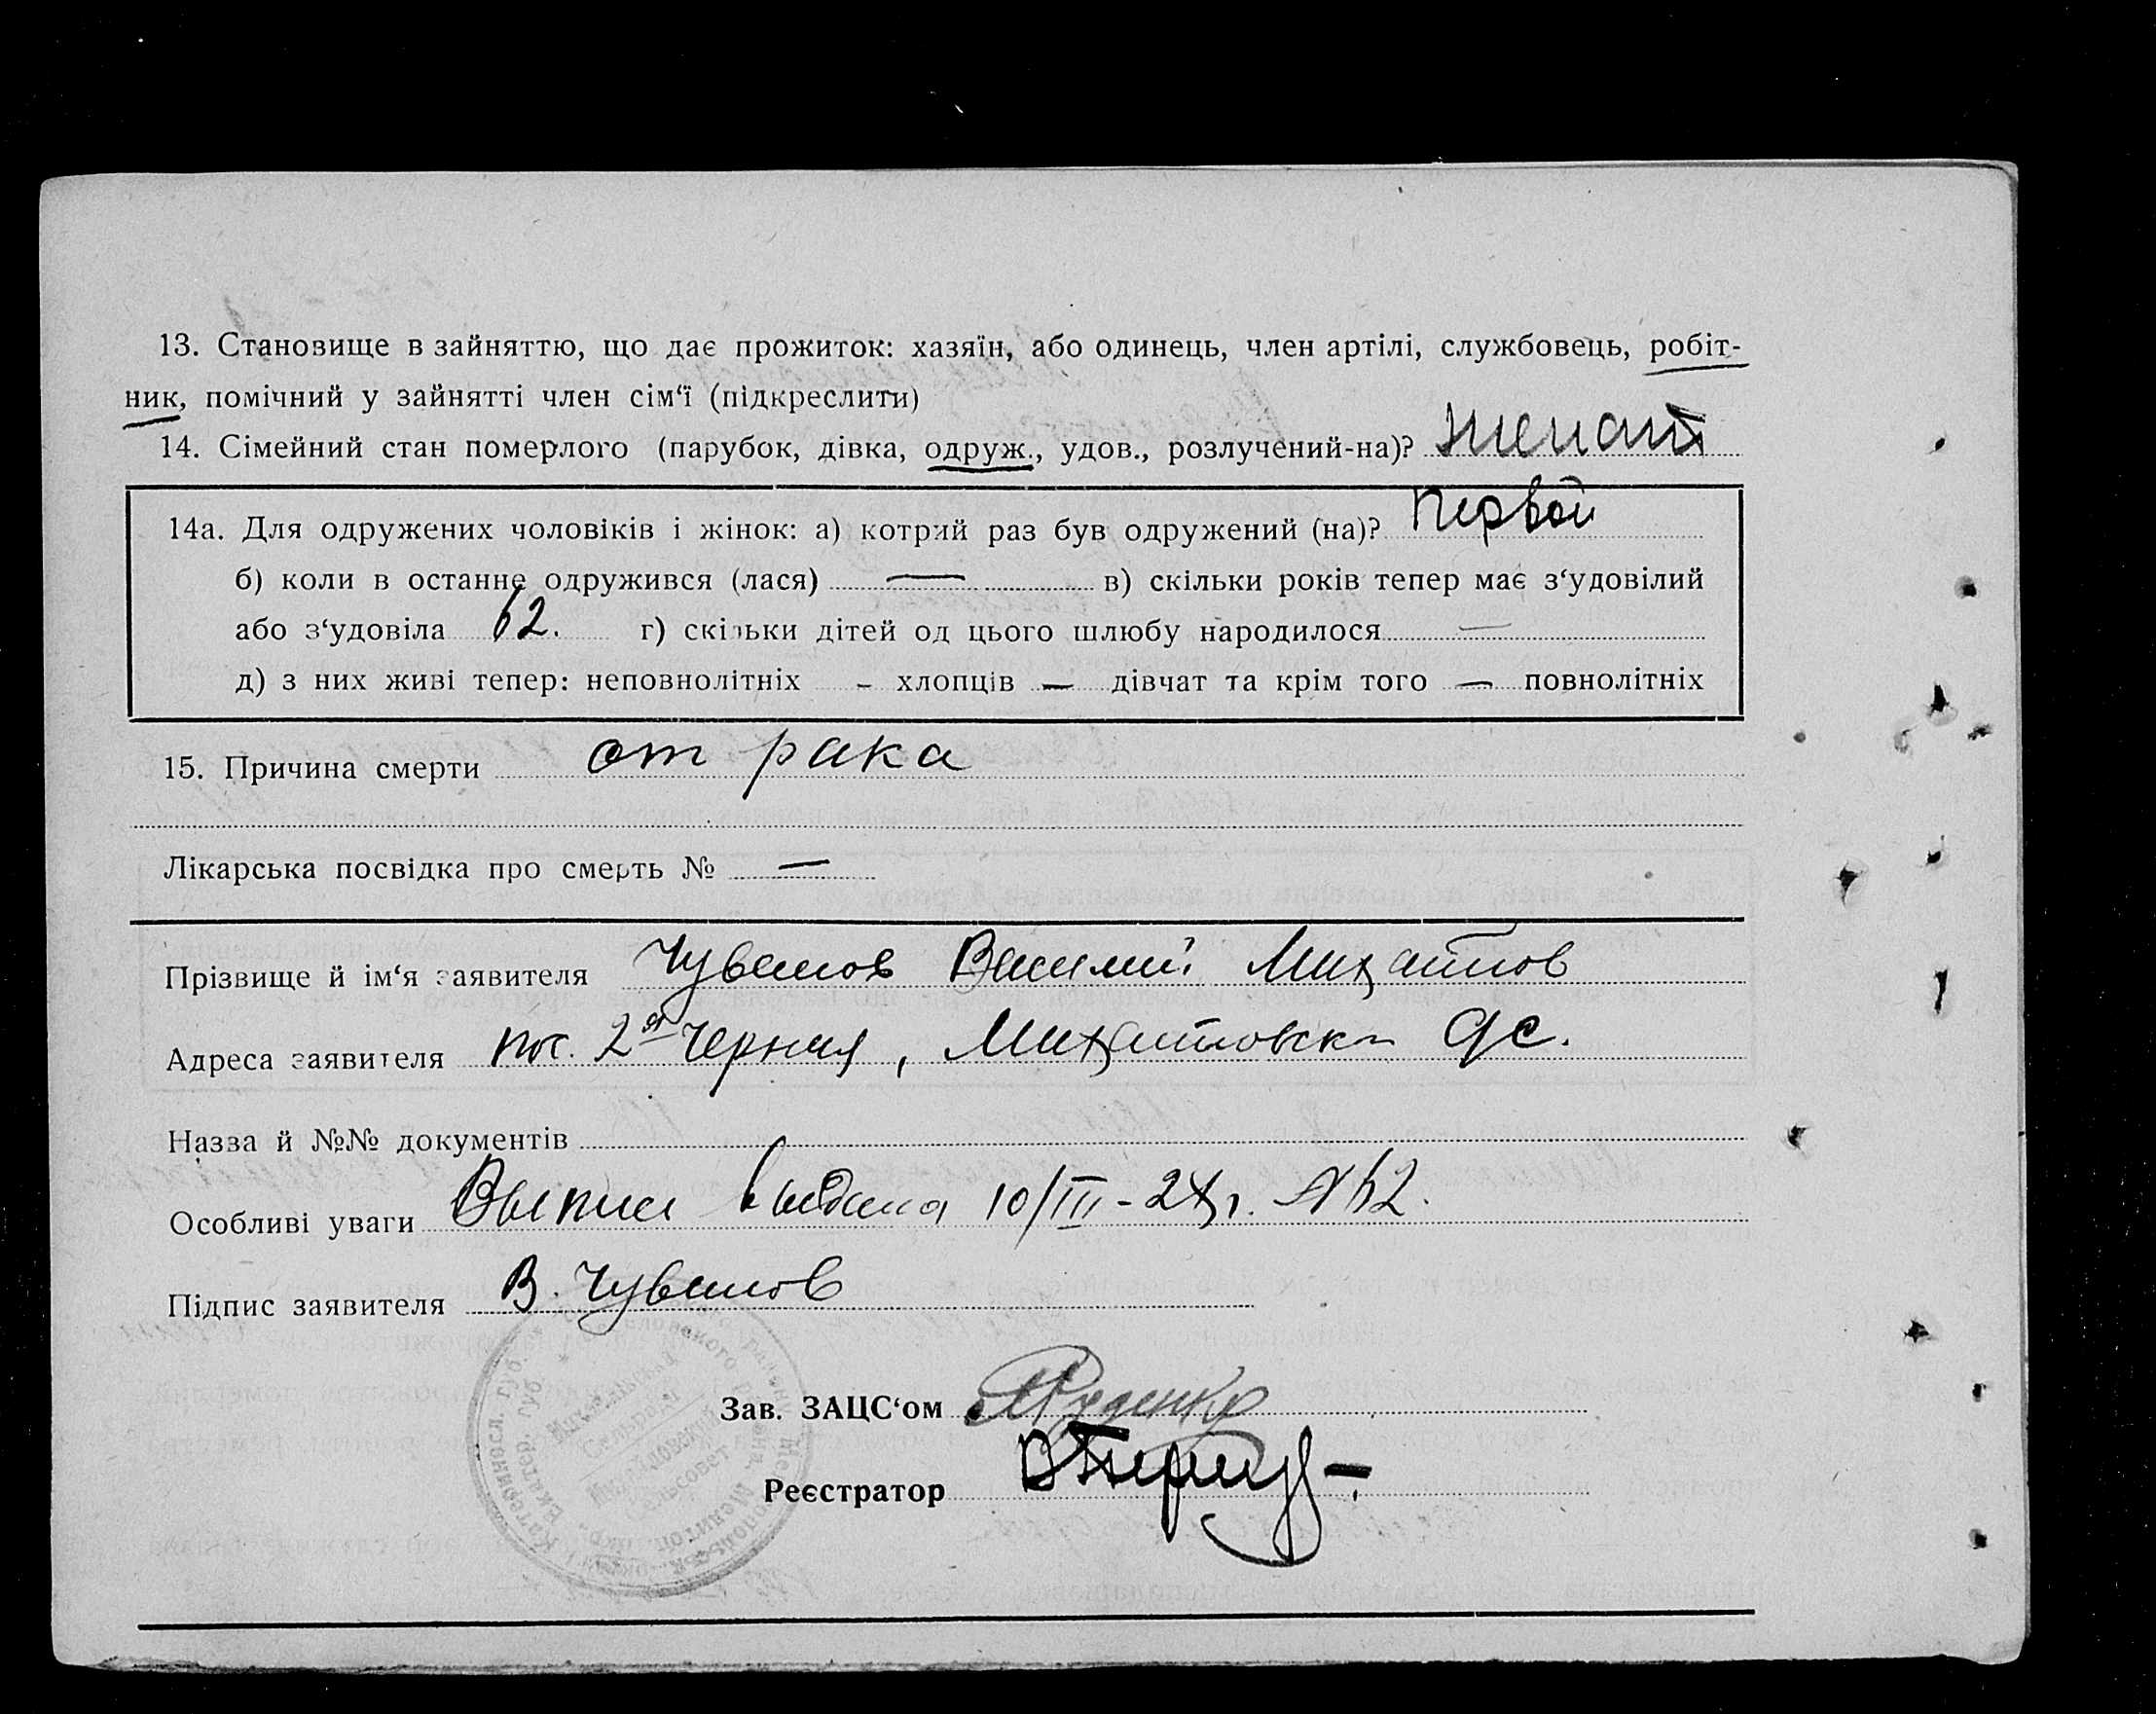 13. Становище в зайняттю, що дає прожиток: хазяїн, або одинець, член артілі, службовець, робіт-
ник, помічний у зайнятті член сім‘ї (підкреслити)
14. Сімейний стан померлого (парубок, дівка, одруж., удов., розлучений-на)? женат
14а. Для одружених чоловіків і жінок: а) котрий раз був одружений (на)? Первой
б) коли в останнє одружився (лася) — в) скільки років тепер має з‘удовілий
або з‘удовіла 62. г) скільки дітей од цього шлюбу народилося —
д) з них живі тепер: неповнолітніх - хлопців — дівчат та крім того — повнолітніх
15. Причина смерти от рака
Лікарська посвідка про смерть № —
Прізвище й ім‘я заявителя Чувашов Василий Михайлов
Адреса заявителя пос. 2я Черная, Михайловск
Назва й №№ документів
Особливі уваги Выпись выдана 10/III-24 г. №
Підпис заявителя В. Чувашов
Зав. ЗАЦС‘ом Руденко
Реєстратор
Михайлівська
Сельрада
Михайловский
Сельсовет